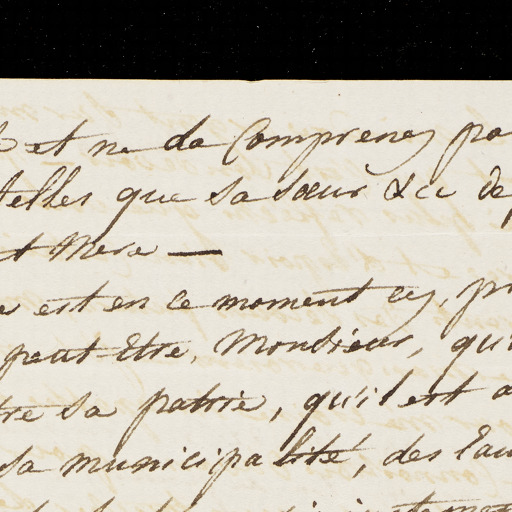 et ne da Comprenez pa
telles que sa sœur &c de
et Mere —
est en ce moment cy, pr
peut être, Monsieur, qu'i
tre sa patrie, qu'il est a
sa municipalité, des Eau